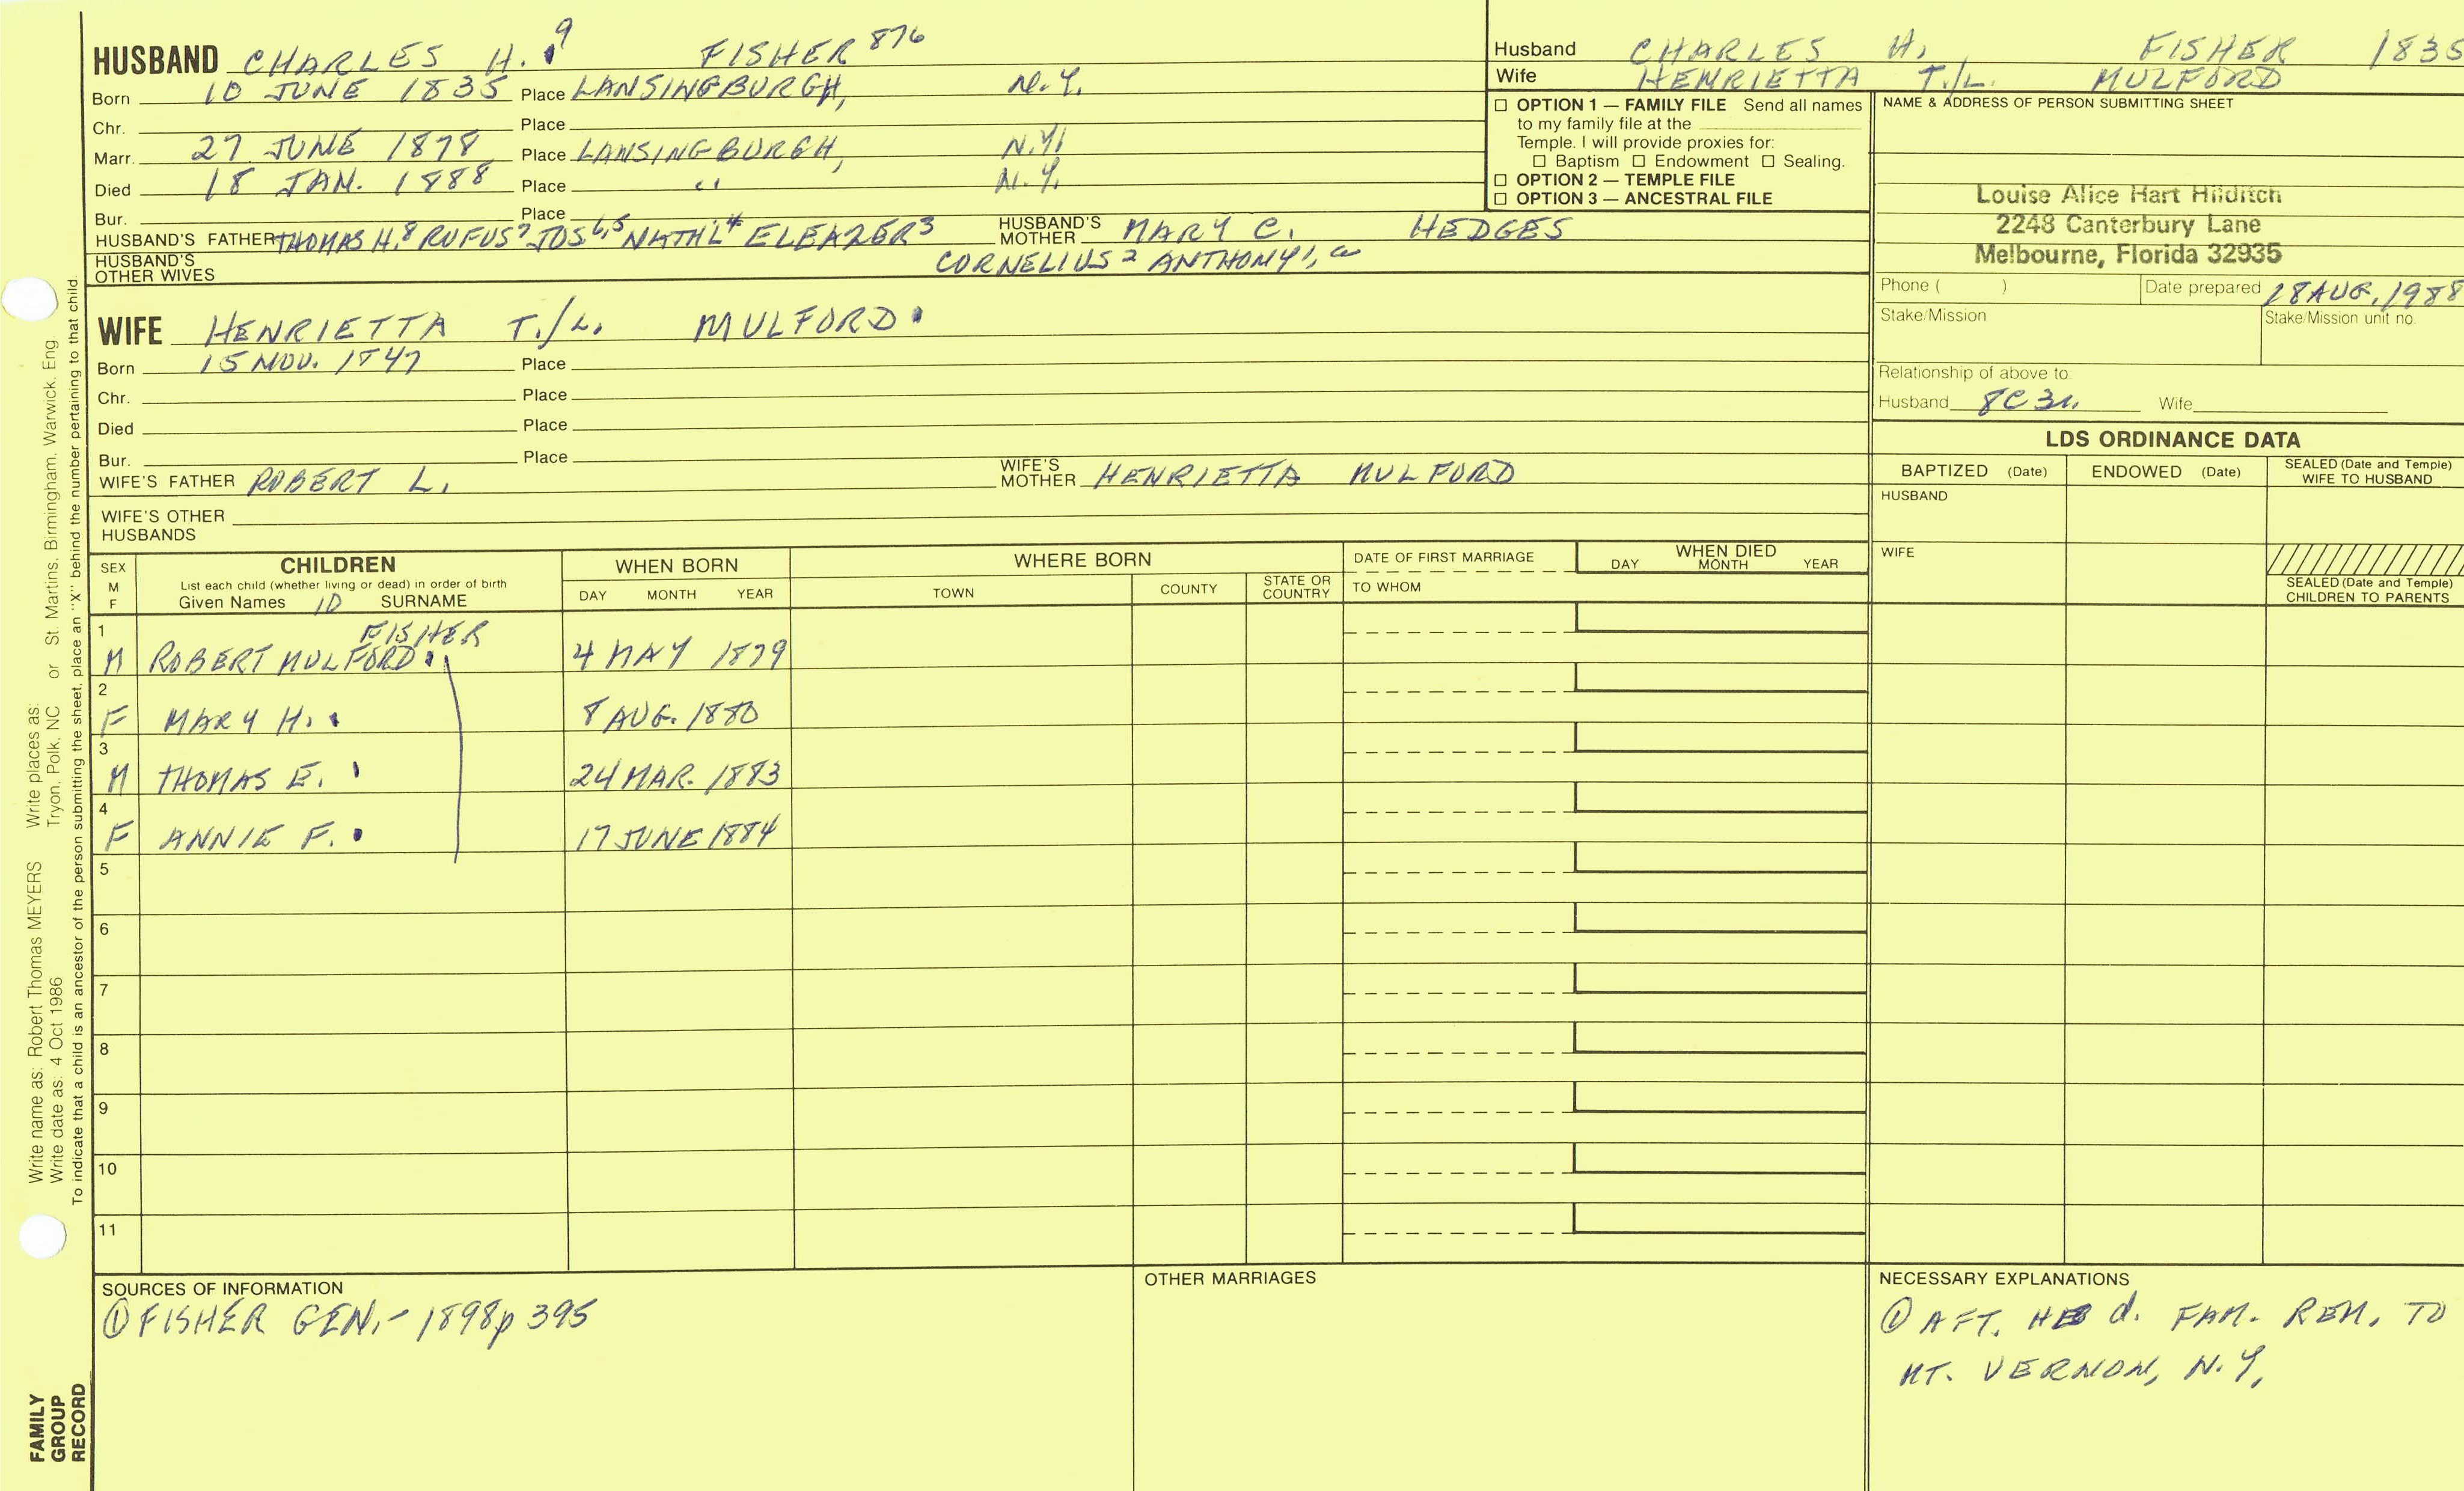 HUSBAND CHARLES H.⁹ FISHER 876
Born 10 JUNE 1835 Place LANSINGBURGH, N.Y.
Chr. Place
Marr. 27 JUNE 1878 Place LANSINGBURGH, N.Y.
Died 18 JAN. 1888 Place " N.Y.
Bur. Place
HUSBAND'S FATHER THOMAS H.⁸ RUFUS⁷ JOS⁶,⁵ NATH'L⁴ ELEAZER³ HUSBAND'S MOTHER MARY C. HEDGES
HUSBAND'S OTHER WIVES CORNELIUS² ANTHONY¹,
WIFE HENRIETTA T./L. MULFORD
Born 15 NOV. 1847 Place
Chr. Place
Died Place
Bur. Place
WIFE'S FATHER ROBERT L. WIFE'S MOTHER HENRIETTA MULFORD
WIFE'S OTHER HUSBANDS
Husband CHARLES H. FISHER 1835
Wife HENRIETTA T./L. MULFORD
☐ OPTION 1 — FAMILY FILE Send all names
to my family file at the
Temple. I will provide proxies for:
☐ Baptism ☐ Endowment ☐ Sealing.
☐ OPTION 2 — TEMPLE FILE
☐ OPTION 3 — ANCESTRAL FILE
NAME & ADDRESS OF PERSON SUBMITTING SHEET
Louise Alice Hart Hilditch
2248 Canterbury Lane
Melbourne, Florida 32935
Phone ( ) Date prepared 28 AUG, 1988
Stake/Mission Stake/Mission unit no.
Relationship of above to
Husband 8C3r. Wife
LDS ORDINANCE DATA
BAPTIZED (Date) ENDOWED (Date) SEALED (Date and Temple) WIFE TO HUSBAND
HUSBAND
WIFE
SEALED (Date and Temple) CHILDREN TO PARENTS
SEX M F CHILDREN WHEN BORN WHERE BORN DATE OF FIRST MARRIAGE WHEN DIED
List each child (whether living or dead) in order of birth
Given Names 10 SURNAME DAY MONTH YEAR TOWN COUNTY STATE OR COUNTRY TO WHOM DAY MONTH YEAR
1 FISHER
M ROBERT MULFORD 4 MAY 1879
2
F MARY H. 8 AUG. 1880
3
M THOMAS E. 24 MAR. 1883
4
F ANNIE F. 17 JUNE 1884
5
6
7
8
9
10
11
SOURCES OF INFORMATION
① FISHER GEN.- 1898 p 395
OTHER MARRIAGES
NECESSARY EXPLANATIONS
① AFT. d. FAM. REM. TO
MT. VERNON, N.Y,
Write name as: Robert Thomas MEYERS Write places as:
Write date as: 4 Oct 1986 Tryon, Polk, NC or St. Martins, Birmingham, Warwick, Eng.
To indicate that a child is an ancestor of the person submitting the sheet, place an "X" behind the number pertaining to that child.
FAMILY
GROUP
RECORD